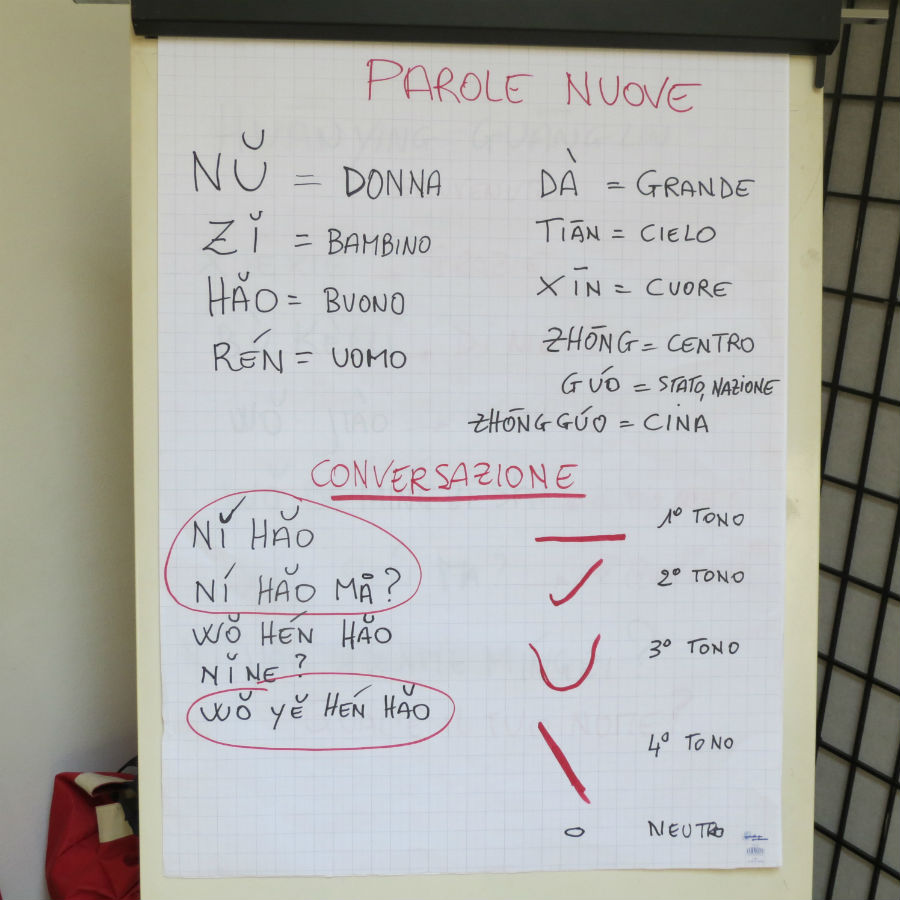 PAROLE NUOVE
NŬ = DONNA
ZĬ = BAMBINO
HĂO = BUONO
RÉN = UOMO
DÀ = GRANDE
TIĀN = CIELO
XĪN = CUORE
ZHŌNG = CENTRO
GÚO = STATO, NAZIONE
ZHŌNG GÚO = CINA
CONVERSAZIONE
NĬ HĂO
NÍ HĂO MÅ?
WŎ HÉN HĂO
NĬ NE?
WŎ YĔ HÉN HĂO
1° TONO
2° TONO
3° TONO
4° TONO
NEUTRO